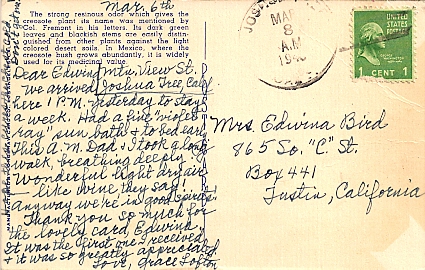 Mar. 6th
The strong resinous odor which gives the
creosote plant its name was mentioned by
Col. Fremont in his letters. Its dark green
leaves and blackish stems are easily distin-
guished from other plants against the light
colored desert soils. In Mexico, where the
creosote bush grows abundantly, it is widely
used for its medicinal value.
Dear Edwina
Mtn. View St.
we arrived Joshua Tree, Calif
here 1 P.M. yesterday to stay
a week. Had a fine "violet
ray" sun bath & to bed early
This A.M. Dad & I took a long
walk, breathing deeply.
Wonderful light dry air
— like wine they say!
anyway we're in good spirits.
Thank you so much for
the lovely card, Edwina,
It was the first one I received
& it was so greatly appreciated.
Love, Grace Lofton
MAR
8
A.M.
CALIF.
UNITED
STATES
POSTAGE
1 CENT 1
Mrs. Edwina Bird
865 So. "C." St.
Box 441
Tustin, California